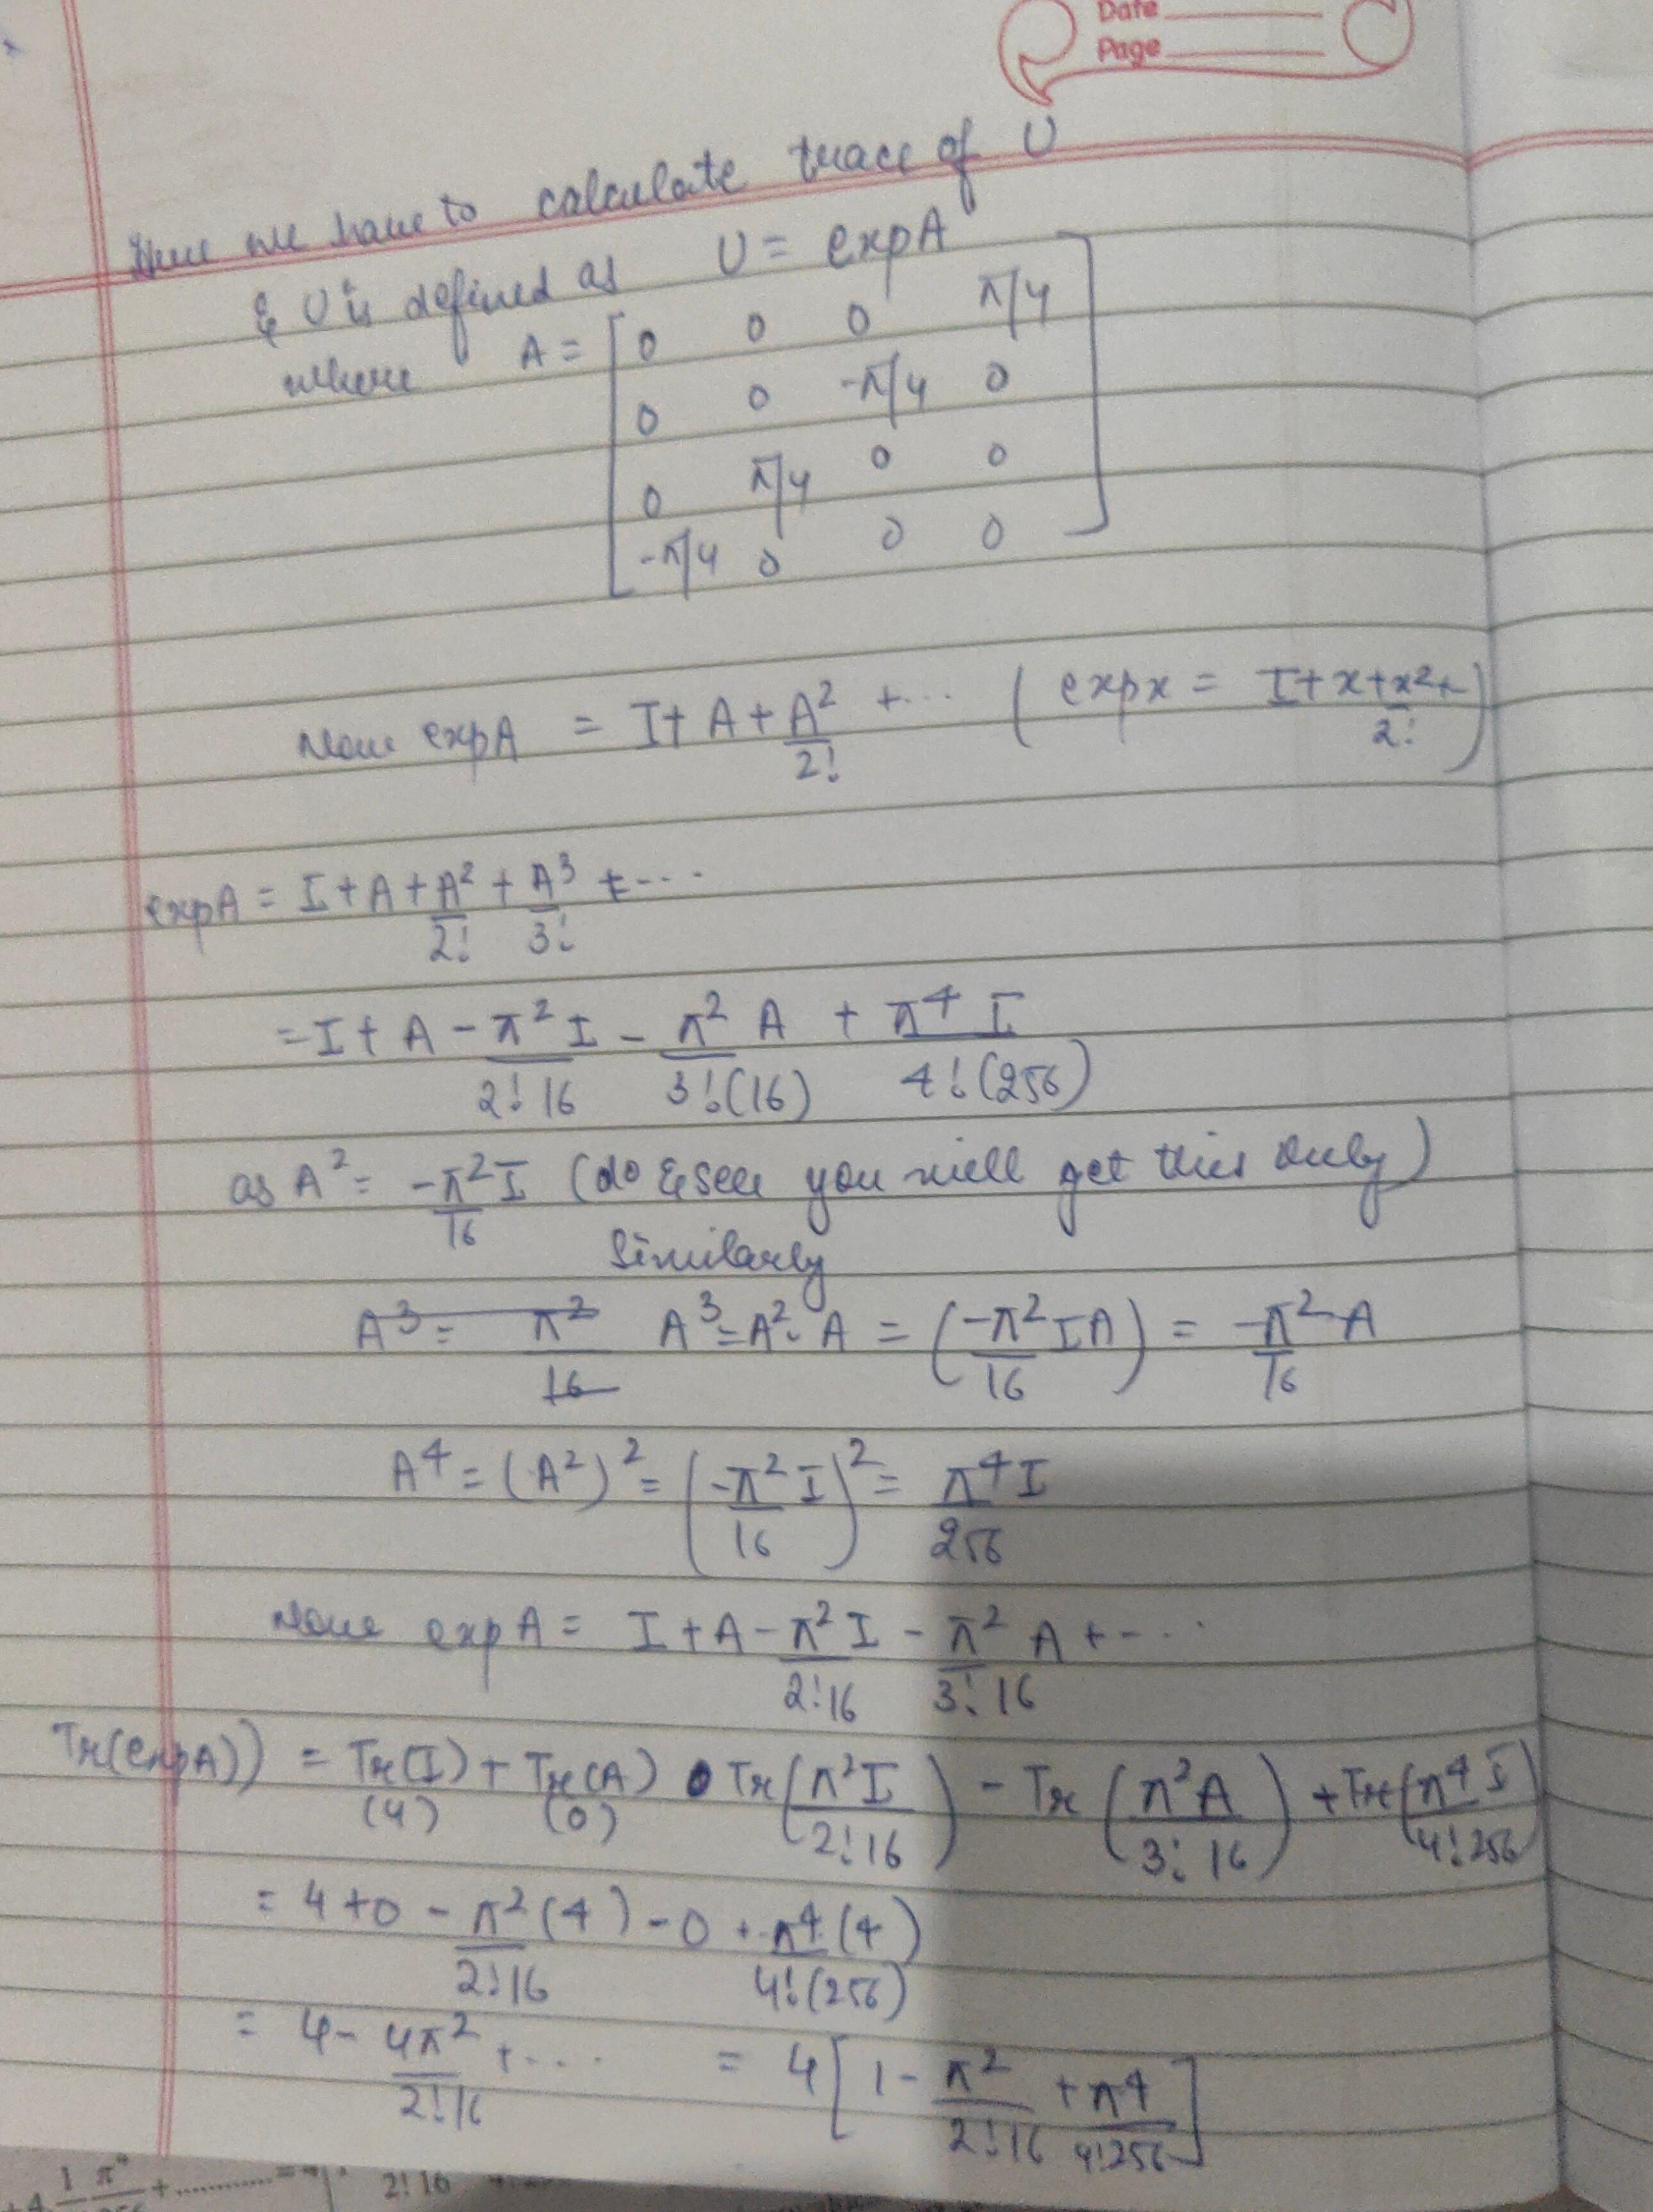 Date
Page
Here we have to calculate trace of U
& U is defined as U = expA
where A = [0 0 0 π/4
0 0 -π/4 0
0 π/4 0 0
-π/4 0 0 0]
Now expA = I + A + A²/2! + ... (expx = I + x + x²/2! +)
expA = I + A + A²/2! + A³/3! + ....
= I + A - π²I/2!16 - π²A/3!(16) + π⁴I/4!(256)
as A² = -π²I/16 (do & see you will get this only)
Similarly
A³ = π²/16 A³ = A². A = (-π²/16 IA) = -π²/16 A
A⁴ = (A²)² = (-π²/16 I)² = π⁴I/256
Now expA = I + A - π²I/2!16 - π²/3!16 A + ....
Tr(expA)) = Tr(I) + Tr(A) Tr(π²I/2!16) - Tr(π²A/3!16) + Tr(π⁴I/4!256)
(4) (0)
= 4 + 0 - π²(4)/2!16 - 0 + π⁴(4)/4!(256)
= 4 - 4π²/2!16 + .... = 4[1 - π²/2!16 + π⁴/4!256]